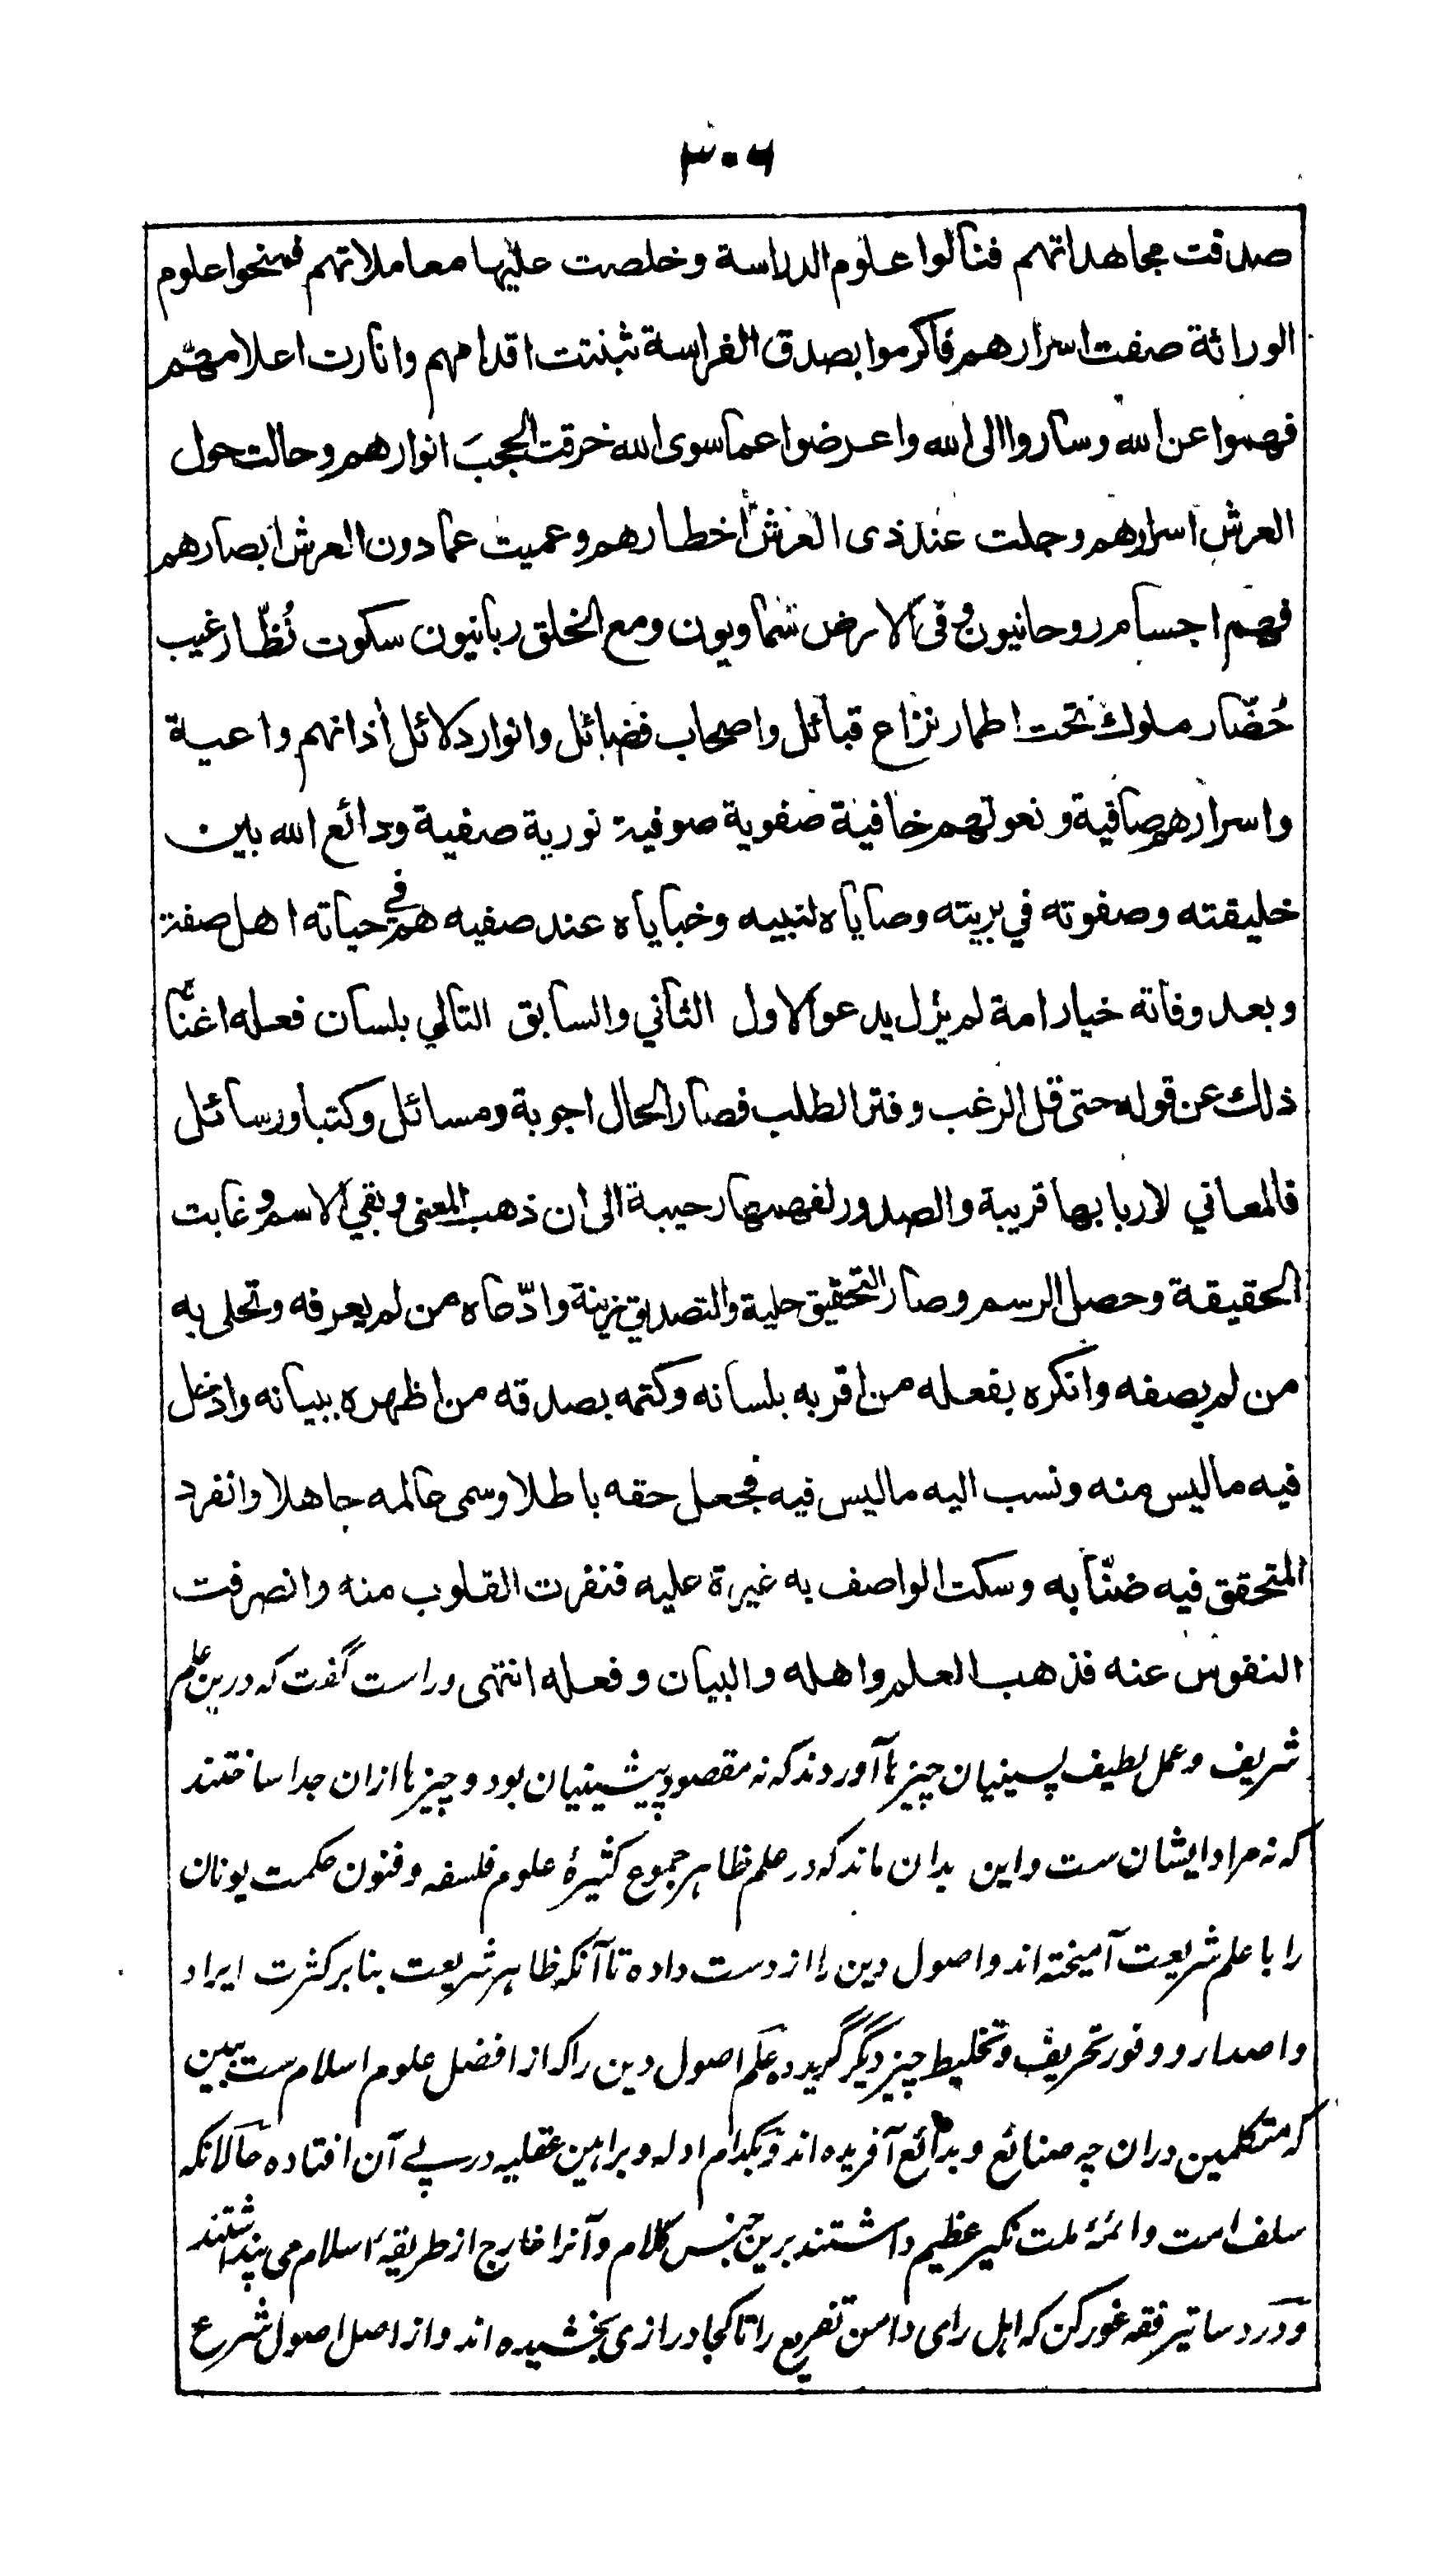 ۳۰۶
صدقت مجاهداتهم فنالوا علوم الدراسة وخلصت عليها معاملاتهم فمنحوا علوم
الوراثة صفت اسرارهم فاكرموا بصدق الفراسة ثبتت اقدامهم وانارت اعلامهم
فهموا عن الله وساروا الى الله واعرضوا عما سوى الله خرقت الحجبَ انوارهم وحالت حول
العرش اسرارهم وجلت عند ذى العرش اخطارهم وعميت عما دون العرش ابصارهم
فهم اجسام روحانيون وفى الارض سماويون ومع الخلق ربانيون سكوت نُظّار غيب
حُضّار ملوك تحت اطمار نزاع قبائل واصحاب فضائل وانوار دلائل أذانهم واعية
واسرارهم صافية ونعوتهم خافية صفوية صوفية نورية صفية ودائع الله بين
خليقته وصفوته في بريته وصاياه لنبيه وخباياه عند صفيه هم في حياته اهل صفته
وبعد وفاته خيار امة لم يزل يدعو الاول الثاني والسابق التالي بلسان فعله اغناهم
ذلك عن قوله حتى قل الرغب وفتر الطلب فصار الحال اجوبة ومسائل وكتبا ورسائل
فالمعاني لاربابها قريبة والصدور لفهمها رحيبة الى ان ذهب المعنى وبقي الاسم وغابت
الحقيقة وحصل الرسم وصار التحقيق حلية والتصديق زينة وادّعاه من لم يعرفه وتحلى به
من لم يصفه وانكره بفعله من اقر به بلسانه وكتمه بصدقه من اظهره ببيانه وادخل
فيه ما ليس منه ونسب اليه ما ليس فيه فجعل حقه باطلا وسمى عالمه جاهلا وانفرد
المتحقق فيه ضنّا به وسكت الواصف به غيرة عليه فنفرت القلوب منه وانصرفت
النفوس عنه فذهب العلم واهله والبيان وفعله انتهى وراست گفت که درین علم
شریف و عمل لطیف پسینیان چیزها آوردند که نه مقصود پیشینیان بود و چیزها ازان جدا ساختند
که نه مراد ایشان ست و این بدان ماند که در علم ظاهر جموع کثیرهٔ علوم فلسفه و فنون حکمت یونان
را با علم شریعت آمیخته اند و اصول دین را از دست داده تا آنکه ظاهر شریعت بنا بر کثرت ایراد
و اصدار و وفور تحریف و تخلیط چیز دیگر گردیده علم اصول دین را که از افضل علوم اسلام ست ببین
که متکلمین دران چه صنائع و بدائع آفریده اند و بکدام ادله و براهین عقلیه در پے آن افتاده حالانکه
سلف امت و ائمهٔ ملت نکیر عظیم داشتند برین جنس کلام و آنرا خارج از طریقهٔ اسلام می پنداشتند
و در دساتیر فقه غور کن که اهل رای دامن تفریع را تا کجا درازی بخشیده اند و از اصل اصول شرع